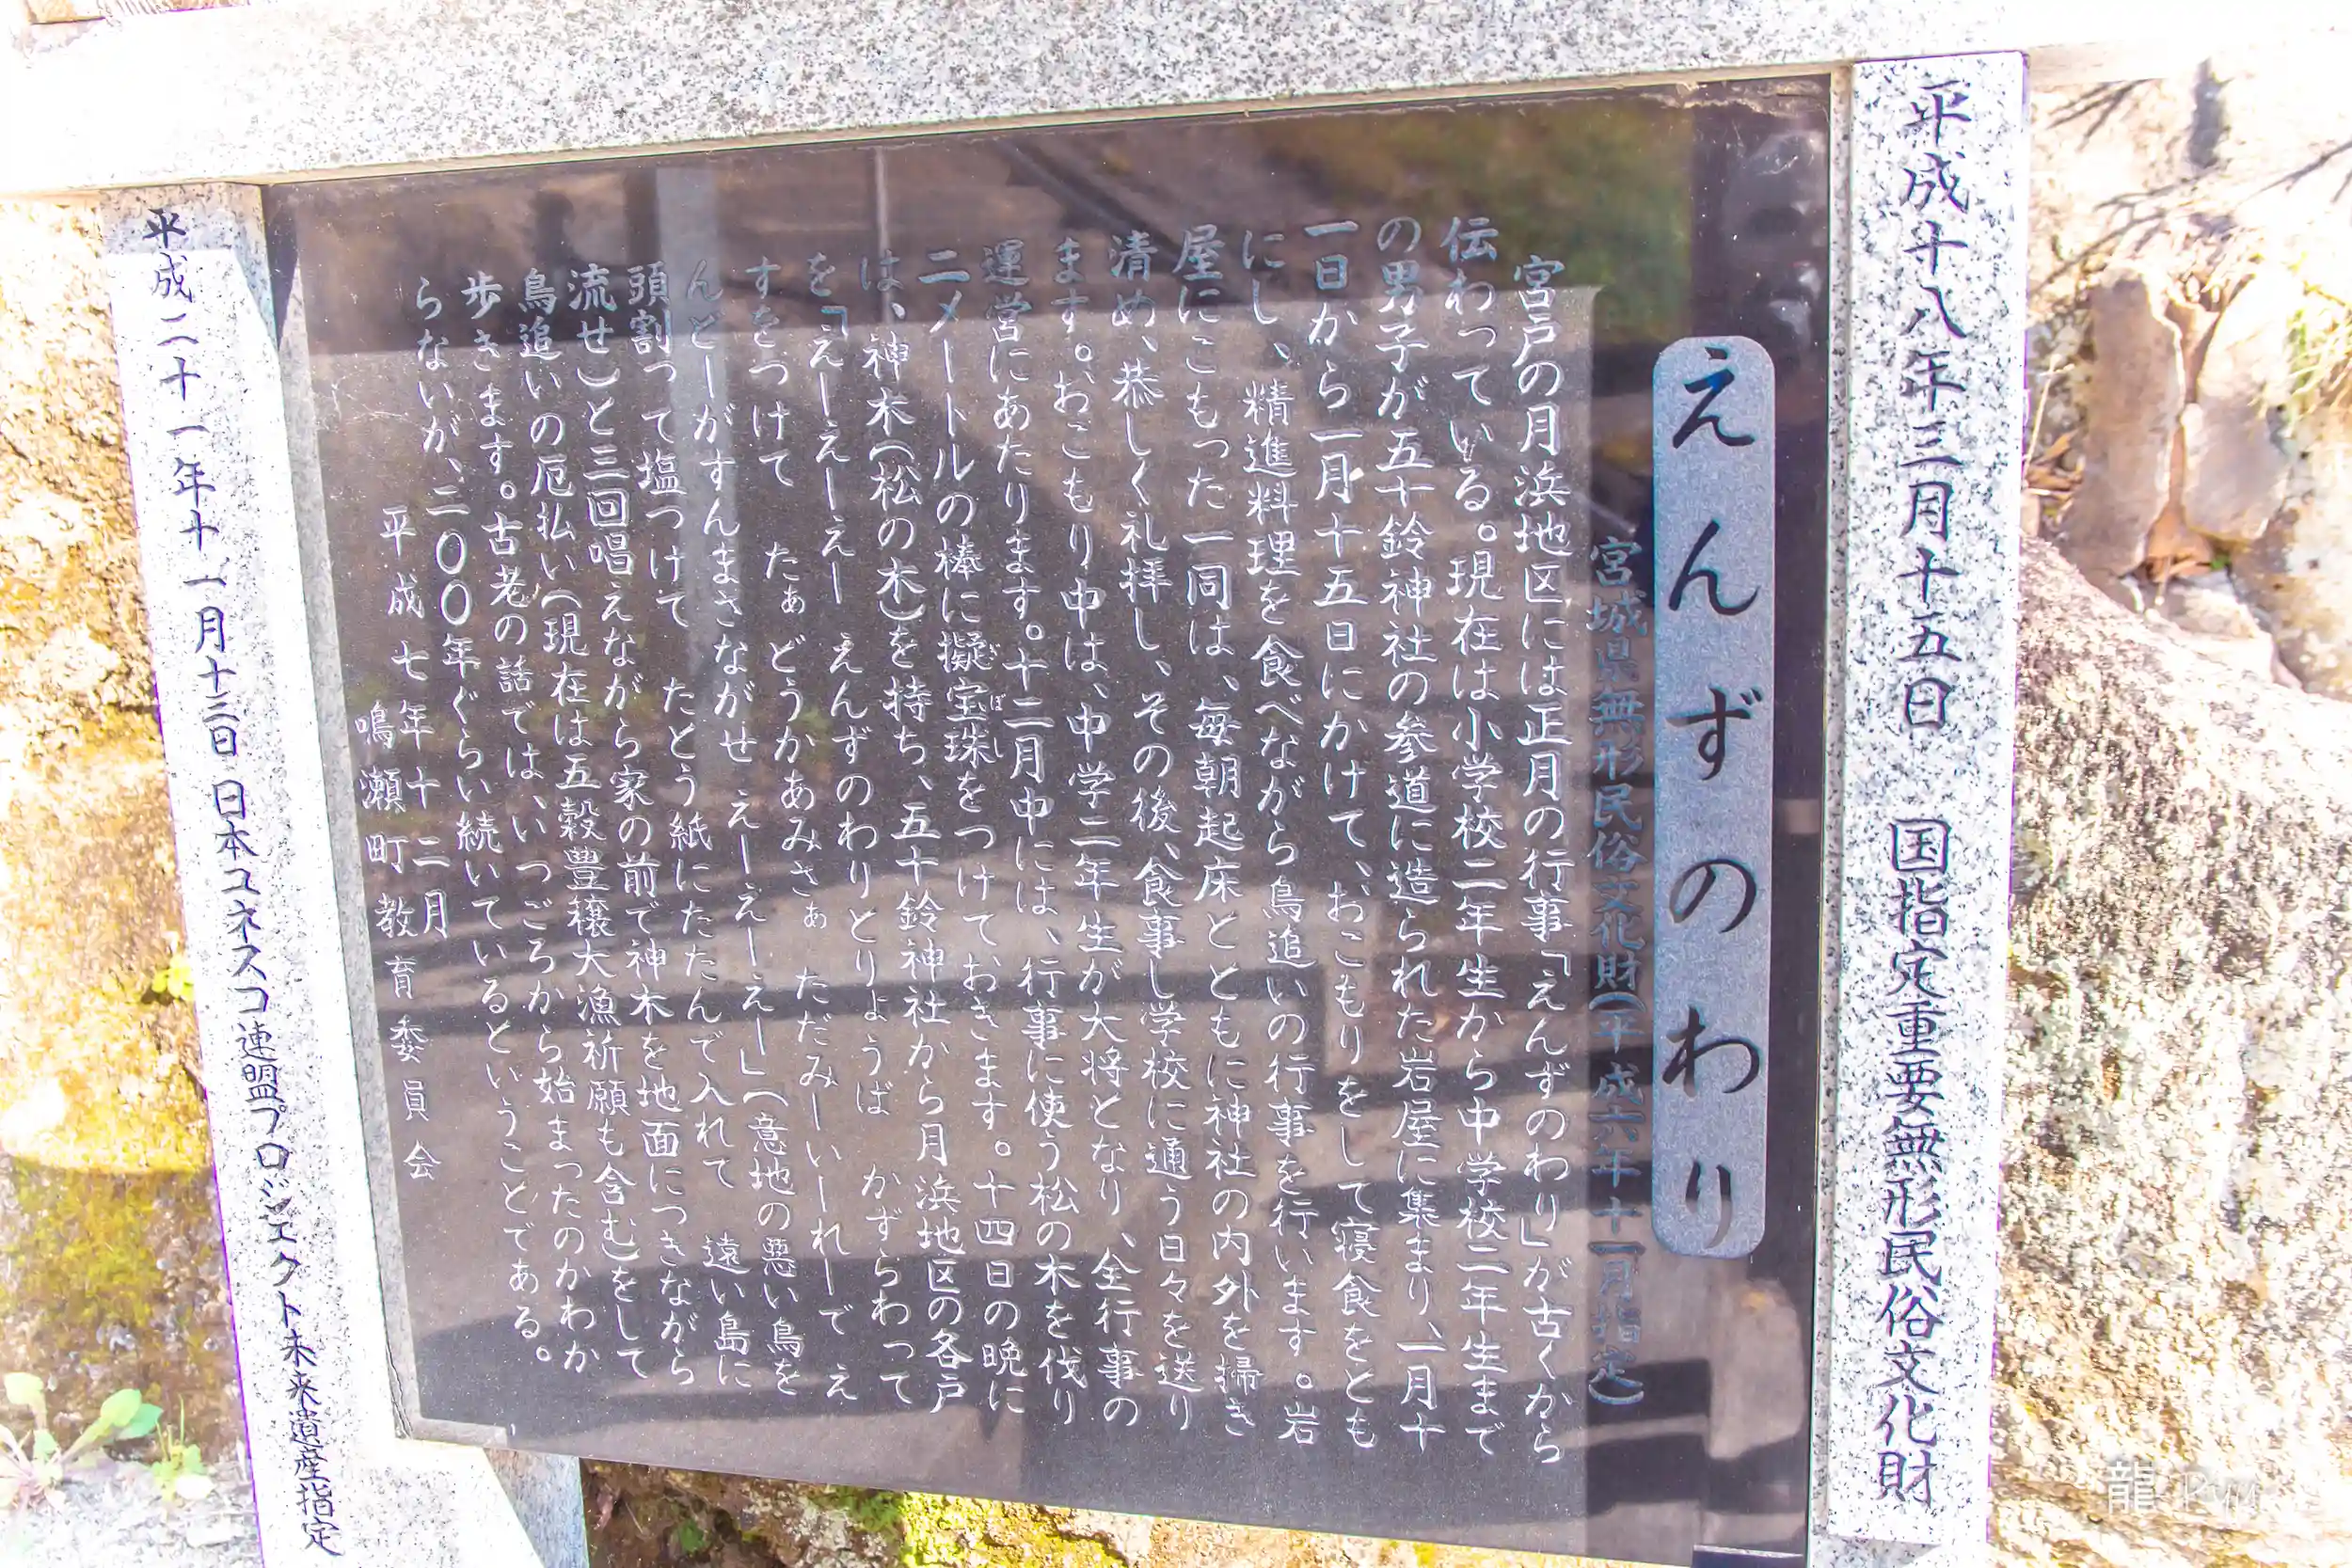 平成十八年三月十五日 国指定重要無形民俗文化財
えんずのわり
宮城県無形民俗文化財(平成六年十一月指定)
宮戸の月浜地区には正月の行事「えんずのわり」が古くから
伝わっている。現在は小学校二年生から中学校二年生まで
の男子が五十鈴神社の参道に造られた岩屋に集まり、一月十
一日から一月十五日にかけて、おこもりをして寝食をとも
にし、精進料理を食べながら鳥追いの行事を行います。岩
屋にこもった一同は、毎朝起床とともに神社の内外を掃き
清め、恭しく礼拝し、その後、食事し学校に通う日々を送り
ます。おこもり中は、中学二年生が大将となり、全行事の
運営にあたります。十二月中には、行事に使う松の木を伐り
二メートルの棒に擬宝珠をつけておきます。十四日の晩に
ぎぼし
は、神木(松の木)を持ち、五十鈴神社から月浜地区の各戸
を「えーえーえー えんずのわりとりょうば かずらわって
すをつけて たぁどうかあみさぁ ただみーいーれーで え
んどーがすんまさながせ えーえーえー」(意地の悪い鳥を
頭割って塩つけて たとう紙にたたんで入れて 遠い島に
流せ)と三回唱えながら家の前で神木を地面につきながら
鳥追いの厄払い(現在は五穀豊穣大漁祈願も含む)をして
歩きます。古老の話では、いつごろから始まったのかわか
らないが、二〇〇年ぐらい続いているということである。
平成七年十二月
鳴瀬町教育委員会
平成二十一年十一月十三日 日本ユネスコ連盟プロジェクト未来遺産指定
龍